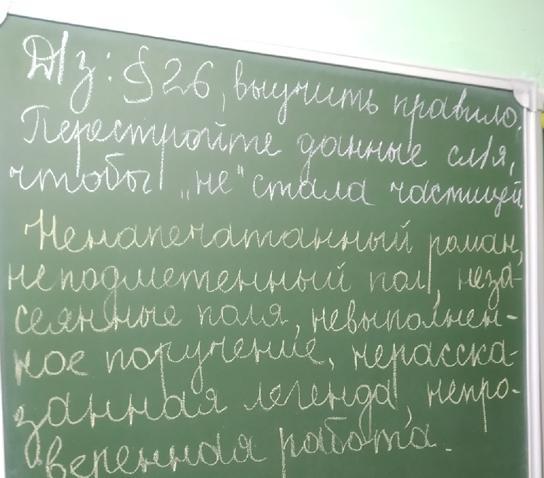 Д/з: § 26, выучить правило.
Перестройте данные сл/я,
чтобы „не" стала частицей
Ненапечатанный роман,
неподметенный пол, неза-
сеянные поля, невыполнен-
ное поручение, нерасска-
занная легенда, непро-
веренная работа.